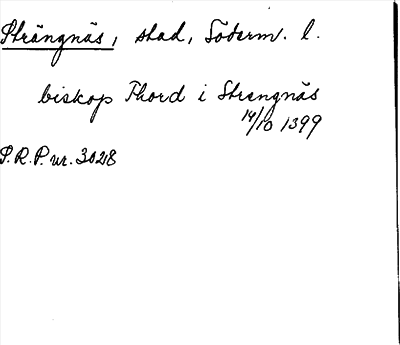 Strängnäs, stad, Söderm. l.
biskop Thord i Strengnäs
14/10 1399
S.R.P. nr. 3028